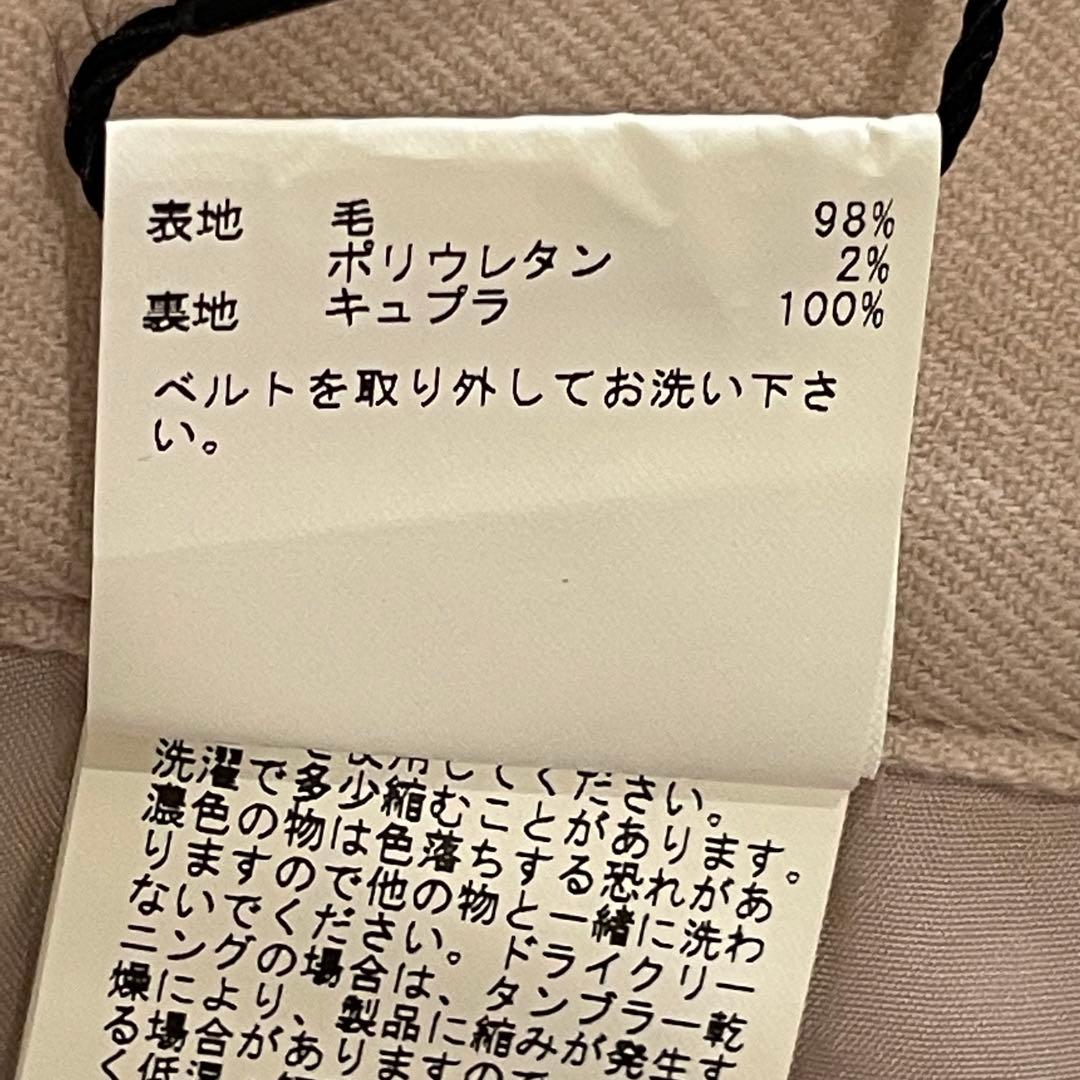 表地 毛 98%
ポリウレタン 2%
裏地 キュプラ 100%
ベルトを取り外してお洗い下さ
い。
用してください。
洗濯で多少縮むことがあります。
濃色の物は色落ちする恐れがあ
りますので他の物と一緒に洗わ
ないでください。ドライクリー
ニングの場合は、タンブラー乾
燥により、製品に縮みが発生す
る場合がありますので
く低温